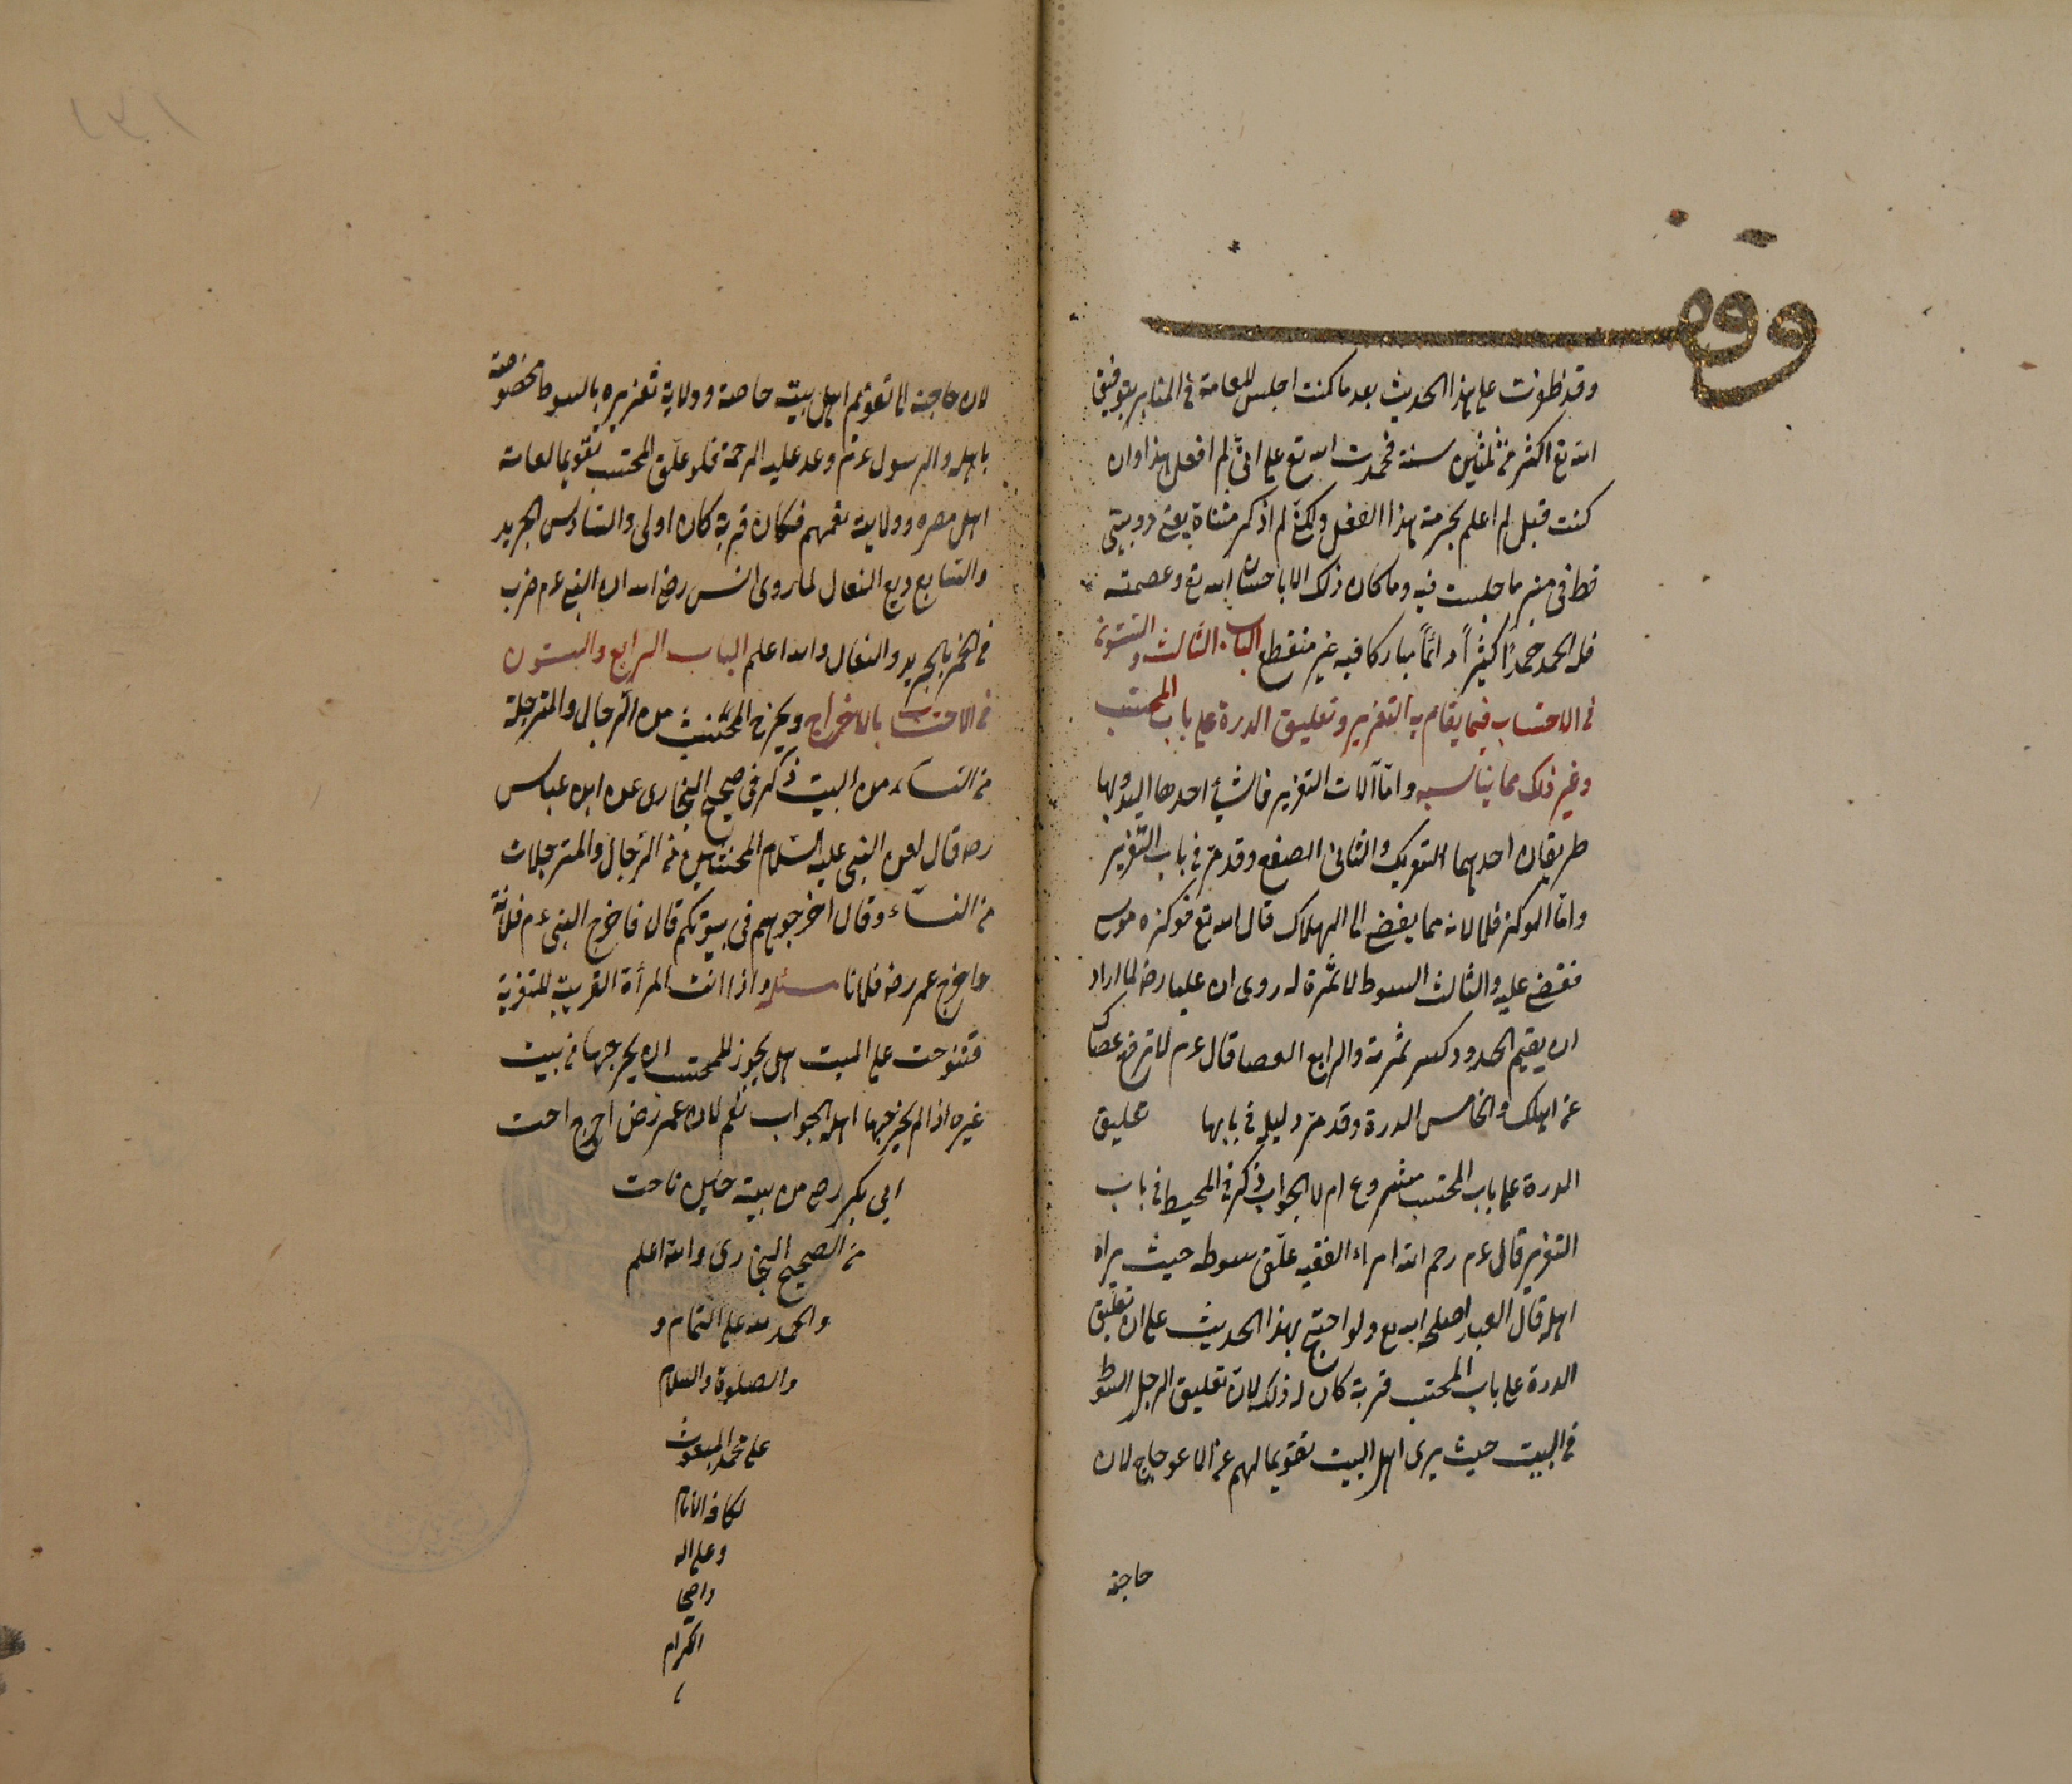 وقف
وقد ظفرت على هذا الحديث بعد ما كنت اجلس للعامة فى المنابر بتوفيق
الله تع اكثر من ثلثين سنة فحمدت الله تع على انى لم افعل هذا وان
كنت قبل لم اعلم بحرمة هذا الفعل ولكنى لم اذكر مثناة يعنى دو بيتى
قط فى منبر ما جلست فيه وما كان ذلك الا باحسان الله تع وعصمته
فله الحمد حمدا كثيراً دائماً مباركا فيه غير منقطع الباب الثالث والستون
فى الاحتساب فيما يقام به التعزير وتعليق الدرة على باب المحتسب
وغير ذلك مما يناسبه واما آلات التعزير فاشياء احدها اليد ولها
طريقان احدهما التعريك والثانى الصفع وقد مر فى باب التعزير
واما الوكز فلا لانه مما يفضى الى الهلاك قال الله تع فوكزه موسى
فقضى عليه والثالث السوط لا ثمرة له روى ان عليا رض لما اراد
ان يقيم الحدود كسر ثمرته والرابع العصا قال عم لا ترفع عصاك
عن اهلك والخامس الدرة وقد مر دليله فى بابها تعليق
الدرة على باب المحتسب مشروع ام لا الجواب ذكر فى المحيط فى باب
التعزير قال عم رحم الله امراء الفقيه علق سوطه حيث يراه
اهله قال العبد اصلحه الله تع ولو احتج بهذا الحديث على ان تعليق
الدرة على باب المحتسب قربة كان له ذلك لان تعليق الرجل السوط
فى البيت حيث يرى اهل البيت تقويما لهم عن الاعوجاج لان
حاجته
لان حاجته الى تقويم اهل بيته خاصة وولاية تعزيره بالسوط مخصوصة
باهله والرسول عم وعد عليه الرحمة فلو علق المحتسب تقويما لعامة
اهل مصره وولايته تعمهم فكان قربة كان اولى والسادس الجريد
والسابع وبع النعال لما روى انس رض الله ان النبى عم ضرب
فى الخمر بالجريد والنعال والله اعلم الباب الرابع والستون
فى الاحتساب بالاخراج ويخرج المخنث من الرجال والمترجلة
من النساء من البيت ذكر فى صحيح البخارى عن ابن عباس
رض قال لعن النبى عليه السلام المخنثين من الرجال والمترجلات
من النساء وقال اخرجوهم فى بيوتكم قال فاخرج النبى عم فلانة
واخرج عمر رض فلانا مسئلة واذا اتت المرأة القريبة للتعزية
فتنوحت على الميت هل يجوز للمحتسب ان يخرجها فى بيت
غيره اذا لم يخرجها اهله الجواب نعم لان عمر رض اخرج اخت
ابى بكر رض من بيته حين ناحت
من الصحيح البخارى والله اعلم
والحمد لله على التمام و
والصلوة والسلام
على محمد المبعوث
لكافة الانام
وعلى اله
واصحا
الكرام